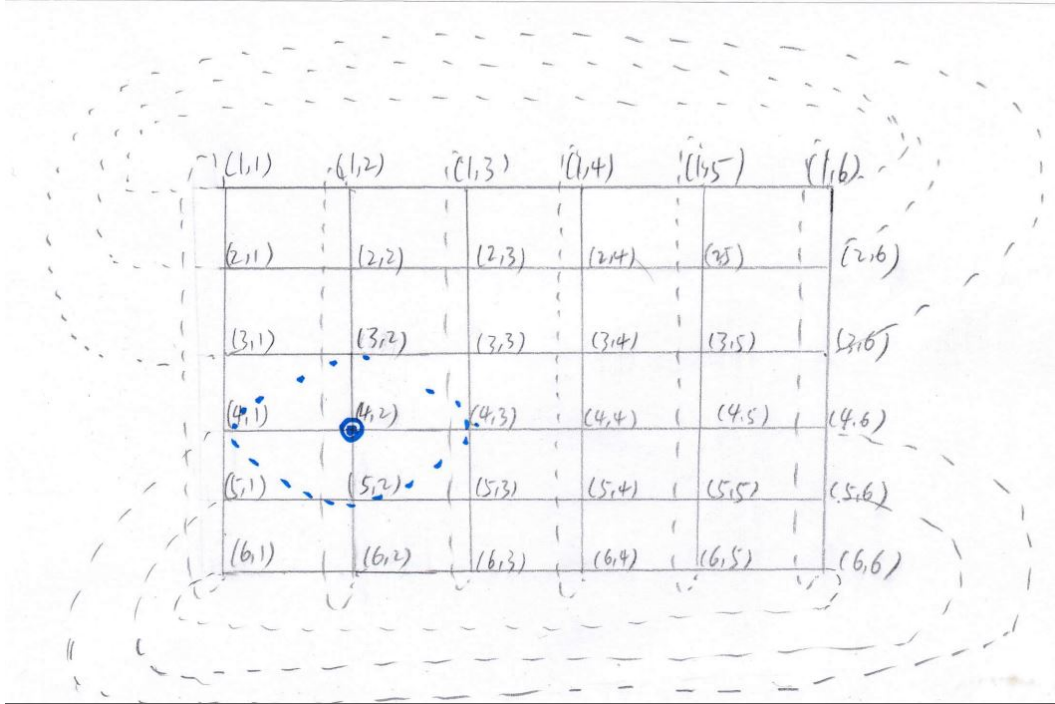 (1,1) (1,2) (1,3) (1,4) (1,5) (1,6)
(2,1) (2,2) (2,3) (2,4) (2,5) (2,6)
(3,1) (3,2) (3,3) (3,4) (3,5) (3,6)
(4,1) (4,2) (4,3) (4,4) (4,5) (4,6)
(5,1) (5,2) (5,3) (5,4) (5,5) (5,6)
(6,1) (6,2) (6,3) (6,4) (6,5) (6,6)